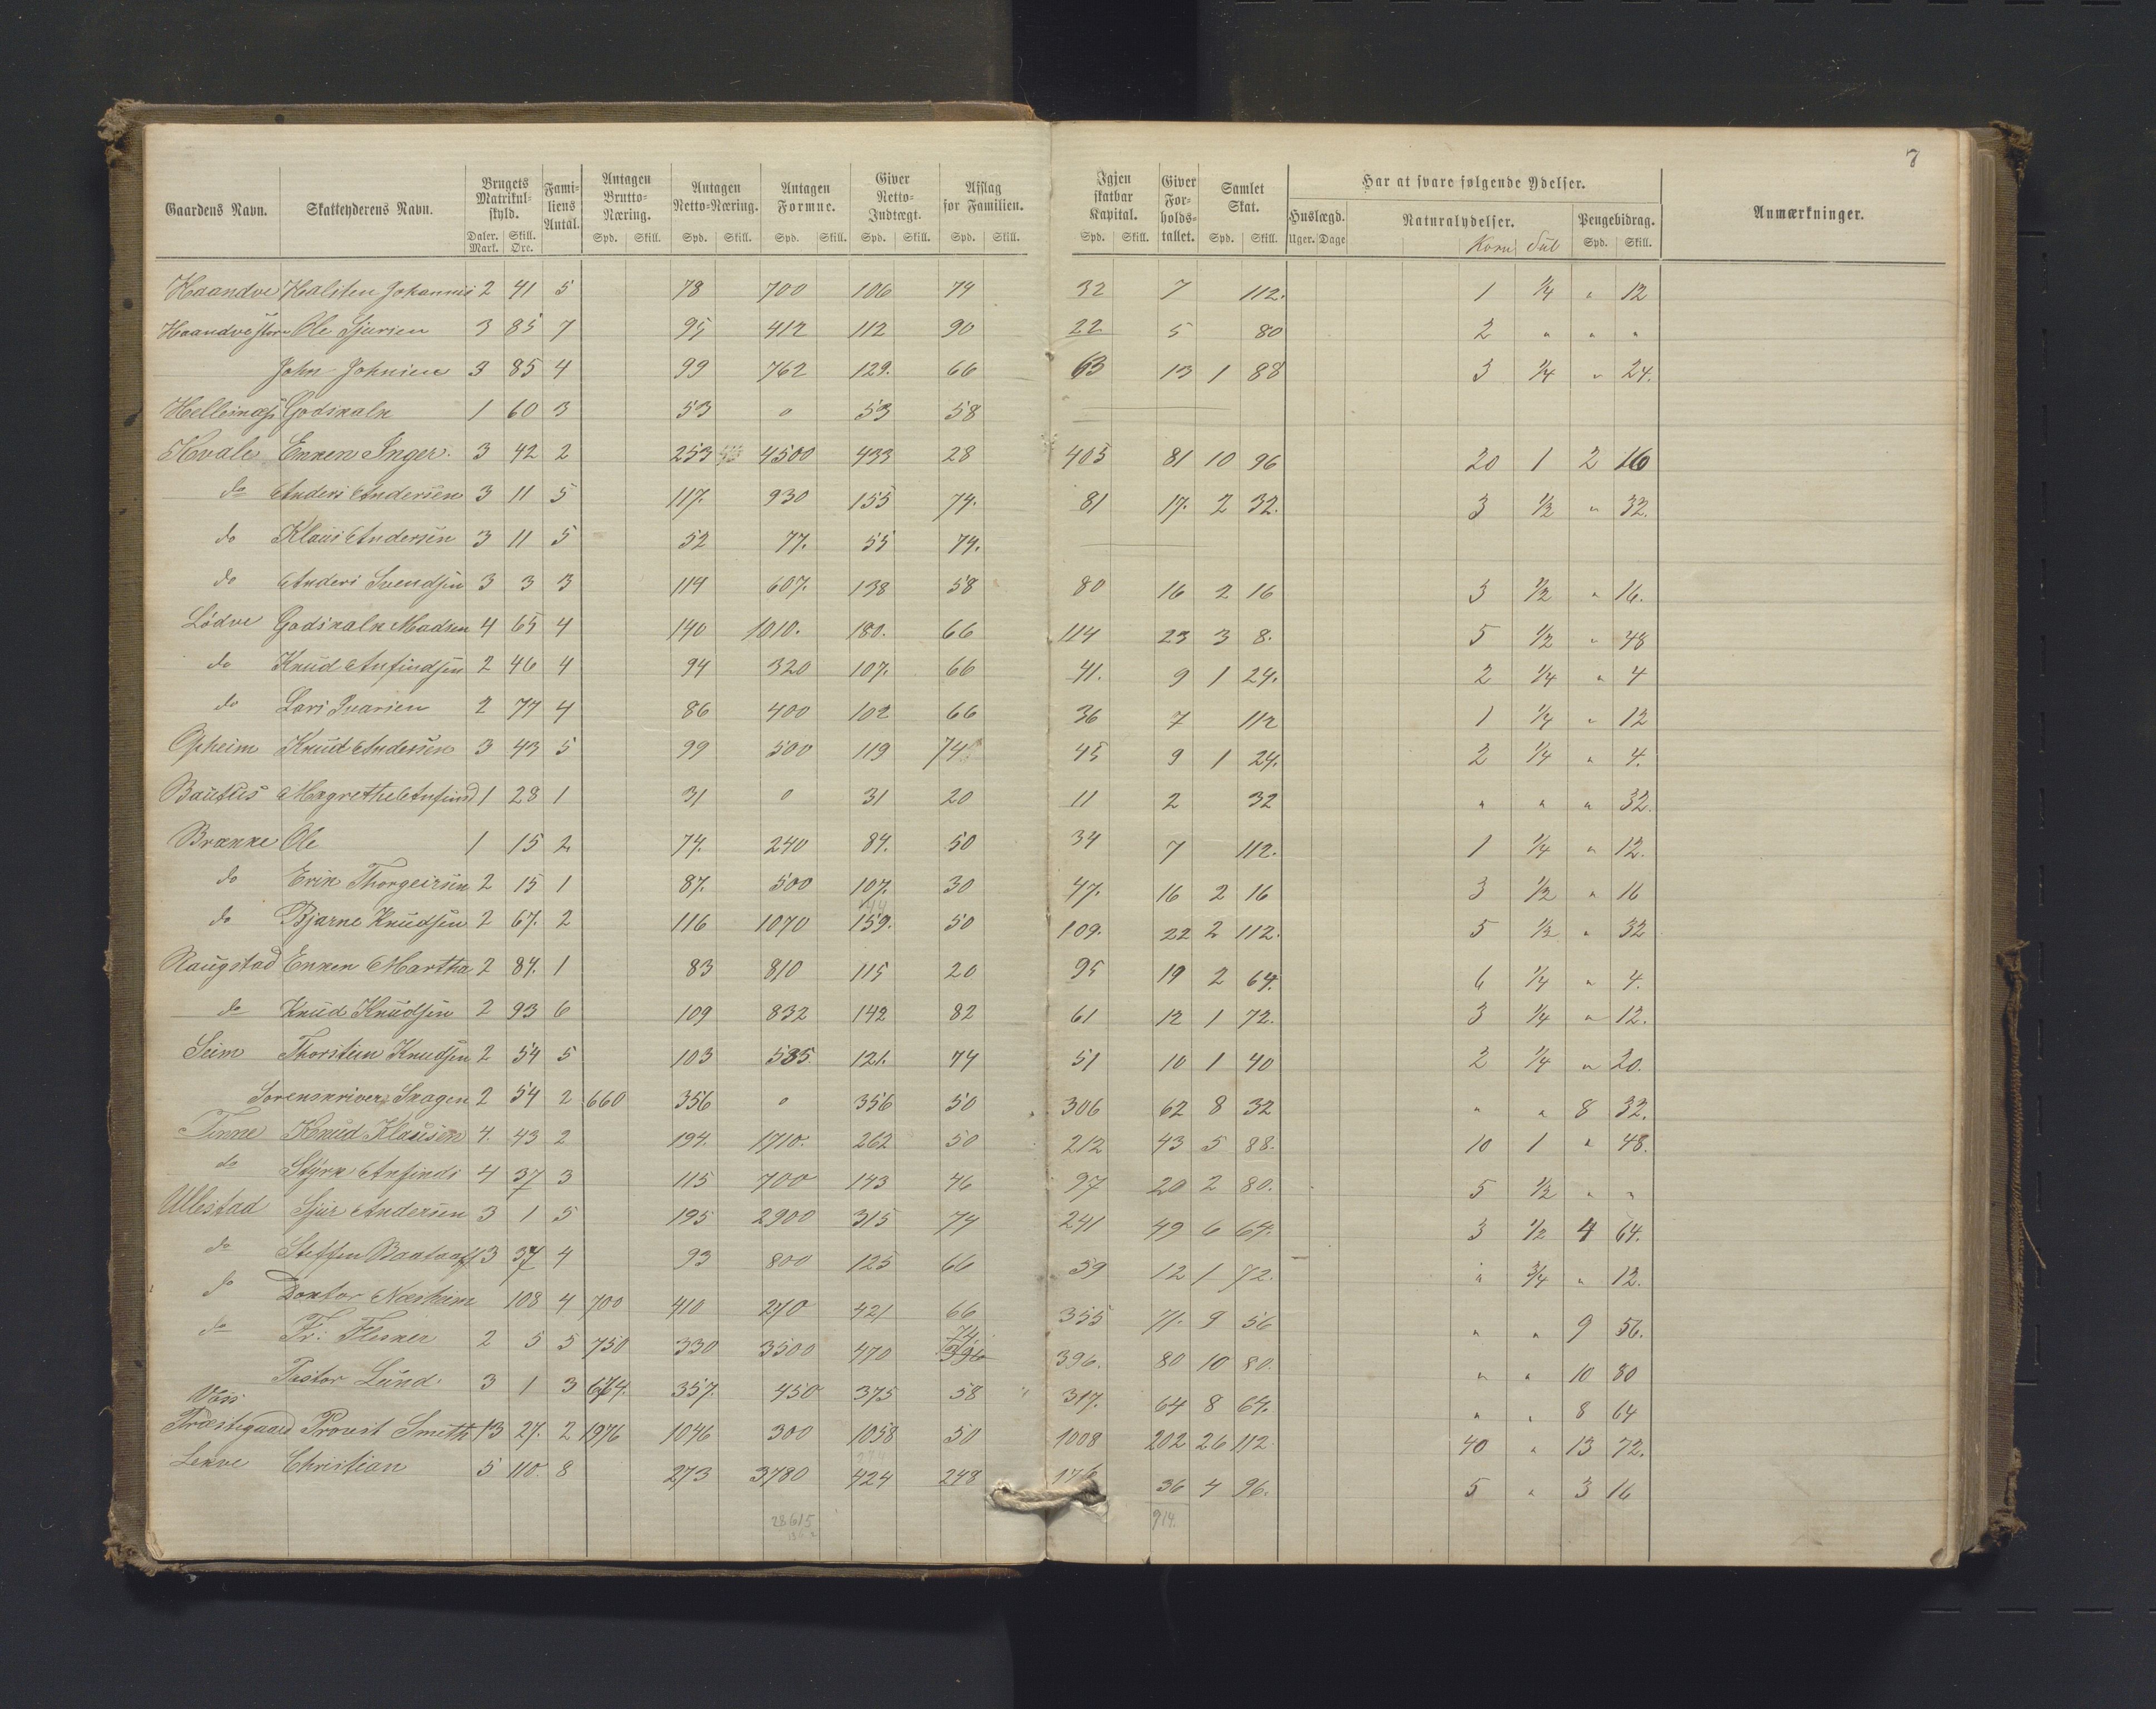 7
Gaardens Navn. Skatteyderens Navn. Brugets Matrikul-skyld. Fami-liens Antal. Antagen Brutto-Næring. Antagen Netto-Næring. Antagen Formue. Giver Netto-Indtægt. Afslag for Familien. Igjen skatbar Kapital. Giver For-holds-tallet. Samlet Skat. Har at svare følgende Ydelser. Anmærkninger.
Huslægd. Naturalydelser. Pengebidrag.
Daler. Mark. Skill. Øre. Spd. Skill. Spd. Skill. Spd. Skill. Spd. Skill. Spd. Skill. Spd. Skill. Spd. Skill. Uger. Dage Korn Sul Spd. Skill.
Haandve Halsten Johannis 2 41 5 78 700 106 74 32 7 112. 1 1/4 " 12
Haandve store Ole Sjursen 3 85 7 95 412 112 90 22 5 80 2 " " "
John Johnsen 3 85 4 99 762 129. 66 63 13 1 88 3 1/4 " 24.
Hellesnæs Godskalk 1 60 3 53 0 53 58
Hvale Enken Inger. 3 42 2 253 4500 433 28 405 81 10 96 20 1 2 16
do Anders Andersen 3 11 5 117. 930 155 74. 81 17. 2 32. 3 1/2 " 32.
do Klaus Andersen 3 11 5 52 77. 55 74.
do Anders Svendsen 3 3 3 114 607. 138 58 80 16 2 16 3 1/2 " 16.
Lødve Godskalk Madsen 4 65 4 140 1010. 180. 66 114 23 3 8. 5 1/2 " 48
do Knud Anfindsen 2 46 4 94 320 107. 66 41. 9 1 24. 2 1/4 " 4
do Lars Ivarsen 2 77 4 86 400 102 66 36 7 112 1 1/4 " 12
Opheim Knud Andersen 3 43 5 99 500 119 74 45 9 1 24. 2 1/4 " 4.
Magrethe Anfind 1 28 1 31 0 31 20 11 2 32 " " " 32.
Brække Ole 1 15 2 74. 240 84. 50 34 7 112. 1 1/4 " 12.
do Erik Thorgeirsen 2 15 1 87. 500 107. 30 47. 16 2 16 3 1/2 " 16
do Bjarne Knudsen 2 67. 2 116 1070 159. 50 109. 22 2 112. 5 1/2 " 32
Raugstad Enken Martha 2 84. 1 83 810 115 20 95 19 2 64. 6 1/4 " 4.
do Knud Knudsen 2 93 6 109 832 142 82 61 12 1 72. 3 1/4 " 12.
Seim Thorstein Knudsen 2 54 5 103 535 121. 74 51 10 1 40 2 1/4 " 20.
Sorenskriver Skagen 2 54 2 660 356 0 356 50 306 62 8 32 " " 8 32.
Finne Knud Klausen 4. 43 2 194. 1710. 262 50 212 43 5 88. 10 1 " 48.
do Styrk Anfinds 4 37 3 115 700 143 46 97 20 2 80. 5 1/2 " "
Ullestad Sjur Andersen 3 1 5 195 2900 315 74 241 49 6 64. 3 1/2 4 64.
do Steffen 3 37 4 93 800 125 66 59 12 1 72. " 3/4 " 12.
do Doktor Næsheim 108 4 700 410 270 421 66 355 71. 9 56 " " 9 56.
do Fr: Fleischer 2 5 5 750 330 3500 470 74. 396. 80 10 80. " " 10 80
Pastor Lund. 3 1 3 674. 357. 450 375 58 317. 64 8 64. " " 8 64
Vos
Præstegaard Provst Smith 13 27. 2 1976 1046 300 1058 50 1008 202 26 112. 40 " 13 72.
Lekve Christian 5 110. 8 273 3780 424 248 176 36 4 96. 5 " 3 16
28615 914.